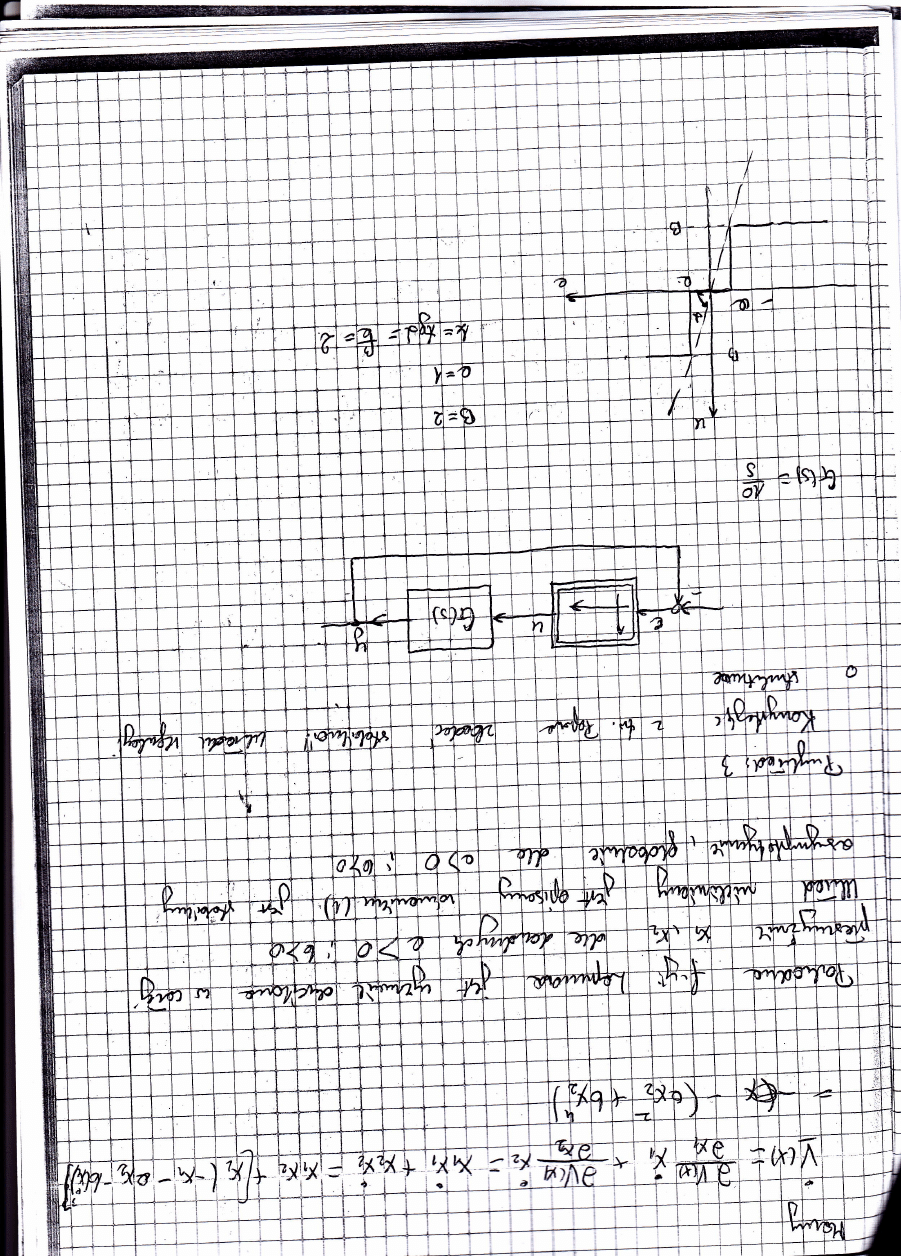 Mamy
V̇(x) = ∂V(x)/∂x₁ ẋ₁ + ∂V(x)/∂x₂ ẋ₂ = x₁ẋ₁ + x₂ẋ₂ = x₁x₂ + [x₂(-x₁ - ax₂ - b(x₂)³)]
= - (ax₂² + bx₂⁴)
Pochodna f-cji Lapunowa jest ujemnie określona w całej
przestrzeni x₁, x₂ dla dowolnych a>0 i b>0
Układ nieliniowy jest opisany równaniem (1) jest stabilny
asymptotycznie, globalnie dla a>0 i b>0
Przykład: 3
Korzystając z tw. Popowa zbadać stabilność układu regulacji
o strukturze
ε u G(s) y
G(s) = 10/s
u
B
B=2
a=1
k = tgα = B/a = 2
α
-a a e
-B